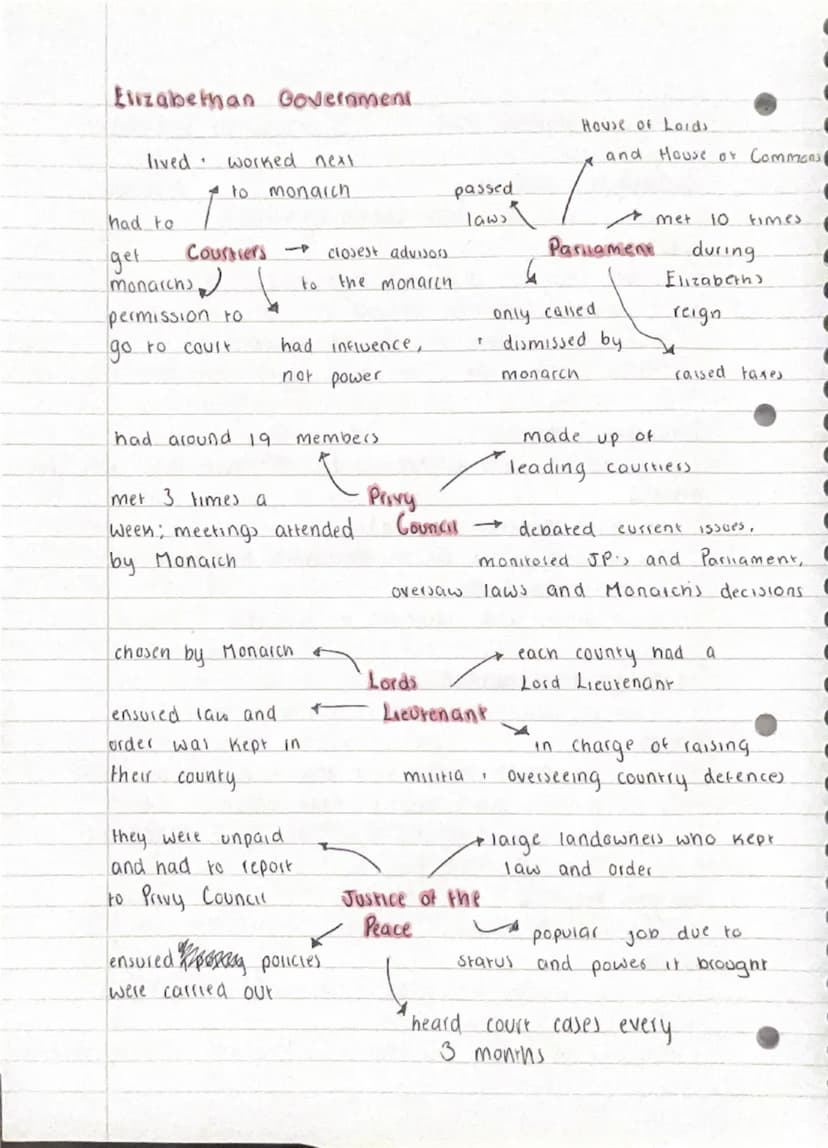 Elizabethan Government
lived + worked next
to monarch
had to
get
monarchs
permission to
go to court
Courtiers
closest advisors
to the monarch
had influence,
not power
House of Lords
and House of Commons
passed
laws
Parliament
met 10 times
during
Elizabeths
reign
only called
+ dismissed by
monarch
raised taxes
had around 19 members
made up of
leading courtiers
met 3 times a
week; meetings attended
by Monarch
Privy
Council
debated current issues,
monitored JP's and Parliament,
oversaw laws and Monarch's decisions
chosen by Monarch
each county had a
Lord Lieutenant
Lords
Lieutenant
ensured law and
order was kept in
their county
in charge of raising
militia + overseeing country defences
they were unpaid
and had to report
to Privy Council
large landowners who kept
law and order
Justice of the
Peace
popular job due to
status and power it brought
ensured policies
were carried out
heard court cases every
3 months